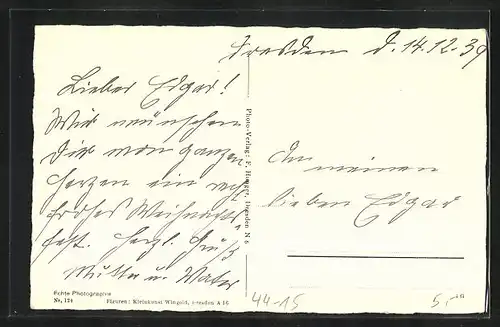 Dresden d. 14.12.39
Lieber Edgar!
Wir wünschen
Dir von ganzen
Herzen ein recht
frohes Weihnachts-
fest. Herzl. Gruß
Mutter u. Vater
An meinen
lieben Edgar
Photo-Verlag: F. Hanger, Dresden N 6
Echte Photographie
Nr. 124 Figuren: Kleinkunst Wingold, Dresden A 16
44-15
5,-